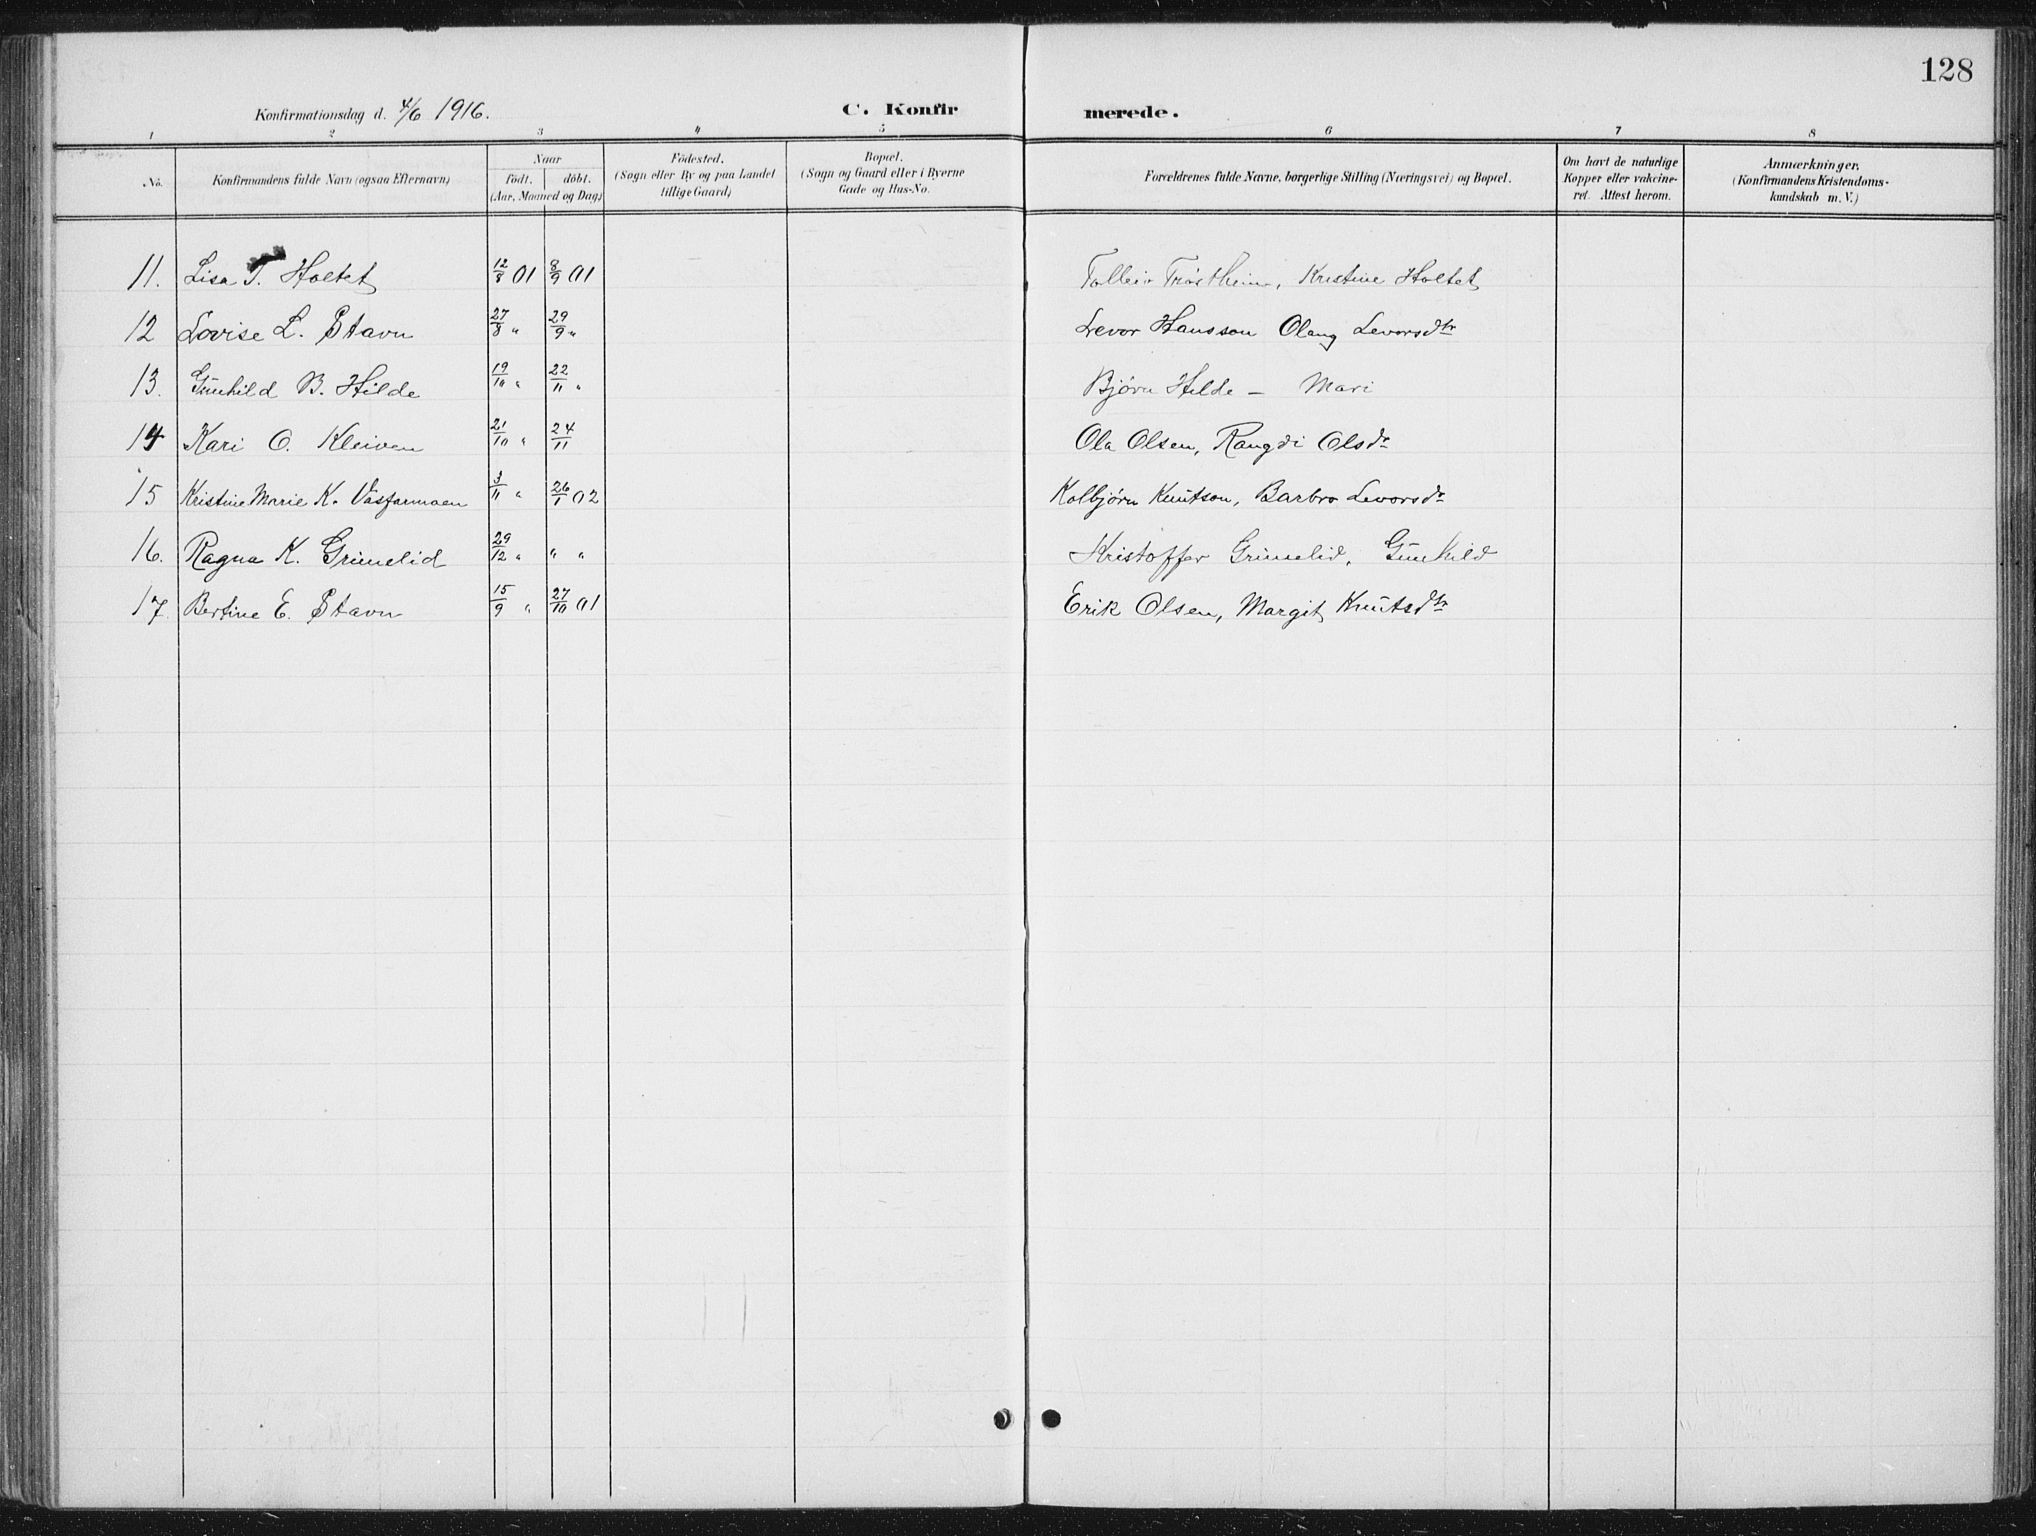 128
Konfirmationsdag d. 4/6 1916. C. Konfir merede.
1 2 3 4 5 6 7 8
No. Konfirmandens fulde Navn (ogsaa Efternavn) Naar födt. döbt. (Aar, Maaned og Dag) Födested. (Sogn eller By og paa Landet tillige Gaard) Bopæl. (Sogn og Gaard eller i Byerne Gade og Hus-No. Forældrenes fulde Navne, borgerlige Stilling (Næringsvei) og Bopæl. Om havt de naturlige Kopper eller vakcineret. Attest herom. Anmærkninger. (Konfirmandens Kristendomskundskab m. V.)
11. Lisa T. Holtet 12/8 01 8/9 01 Tolleiv Trøstheim, Kristine Holtet
12 Lovise L. Stavn 27/8 " 29/9 " Levor Hansson Olaug Levorsdtr
13. Gunhild B. Hilde 19/10 " 22/11 " Bjørn Hilde — Mari
14 Kari O. Kleiven 21/10 " 24/11 Ola Olsen, Rangdi Olsdr
15 Kristine Marie K. Vasfarmoen 3/11 " 26/1 02 Kolbjørn Knutson, Barbro Levorsdr
16. Ragna K. Grimelid 29/12 " " " Kristoffer Grimelid, Gunhild
17. Bertine E. Stavn 15/9 " 27/10 01 Erik Olsen, Margit Knutsdtr